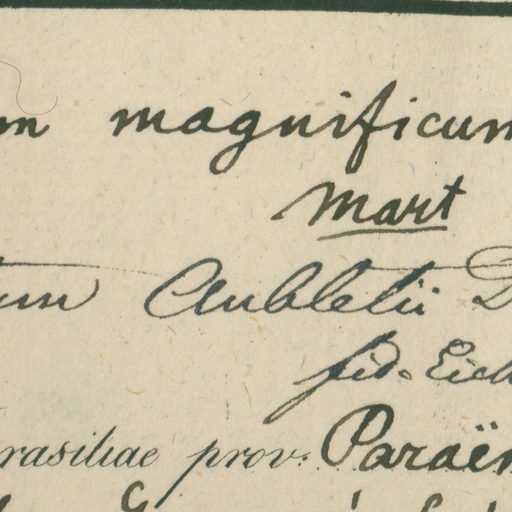 m magnificum
Mart
um Aubletii D
fid. Eich
rasiliae prov. Paraën